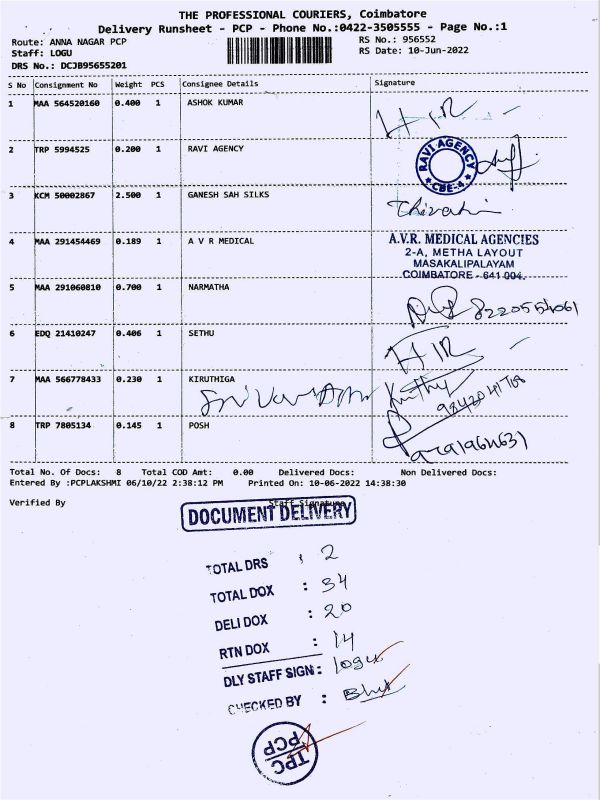 THE PROFESSIONAL COURIERS, Coimbatore
Delivery Runsheet - PCP - Phone No.:0422-3505555 - Page No.:1
Route: ANNA NAGAR PCP RS No.: 956552
Staff: LOGU RS Date: 10-Jun-2022
DRS No.: DCJB95655201
S No Consignment No Weight PCS Consignee Details Signature
1 MAA 564520160 0.400 1 ASHOK KUMAR HIR
2 TRP 5994525 0.200 1 RAVI AGENCY RAVI AGENCY CBE-4
3 KCM 50002867 2.500 1 GANESH SAH SILKS
4 MAA 291454469 0.189 1 A V R MEDICAL A.V.R. MEDICAL AGENCIES
2-A, METHA LAYOUT
MASAKALIPALAYAM
COIMBATORE - 641 004.
5 MAA 291060810 0.700 1 NARMATHA 8220554061
6 EDQ 21410247 0.406 1 SETHU HIR
7 MAA 566778433 0.230 1 KIRUTHIGA
8 TRP 7805134 0.145 1 POSH
Total No. Of Docs: 8 Total COD Amt: 0.00 Delivered Docs: Non Delivered Docs:
Entered By :PCPLAKSHMI 06/10/22 2:38:12 PM Printed On: 10-06-2022 14:38:30
Verified By Staff Signature
DOCUMENT DELIVERY
TOTAL DRS : 2
TOTAL DOX : 34
DELI DOX : 20
RTN DOX : 14
DLY STAFF SIGN : logu
CHECKED BY :
TPC
PCP